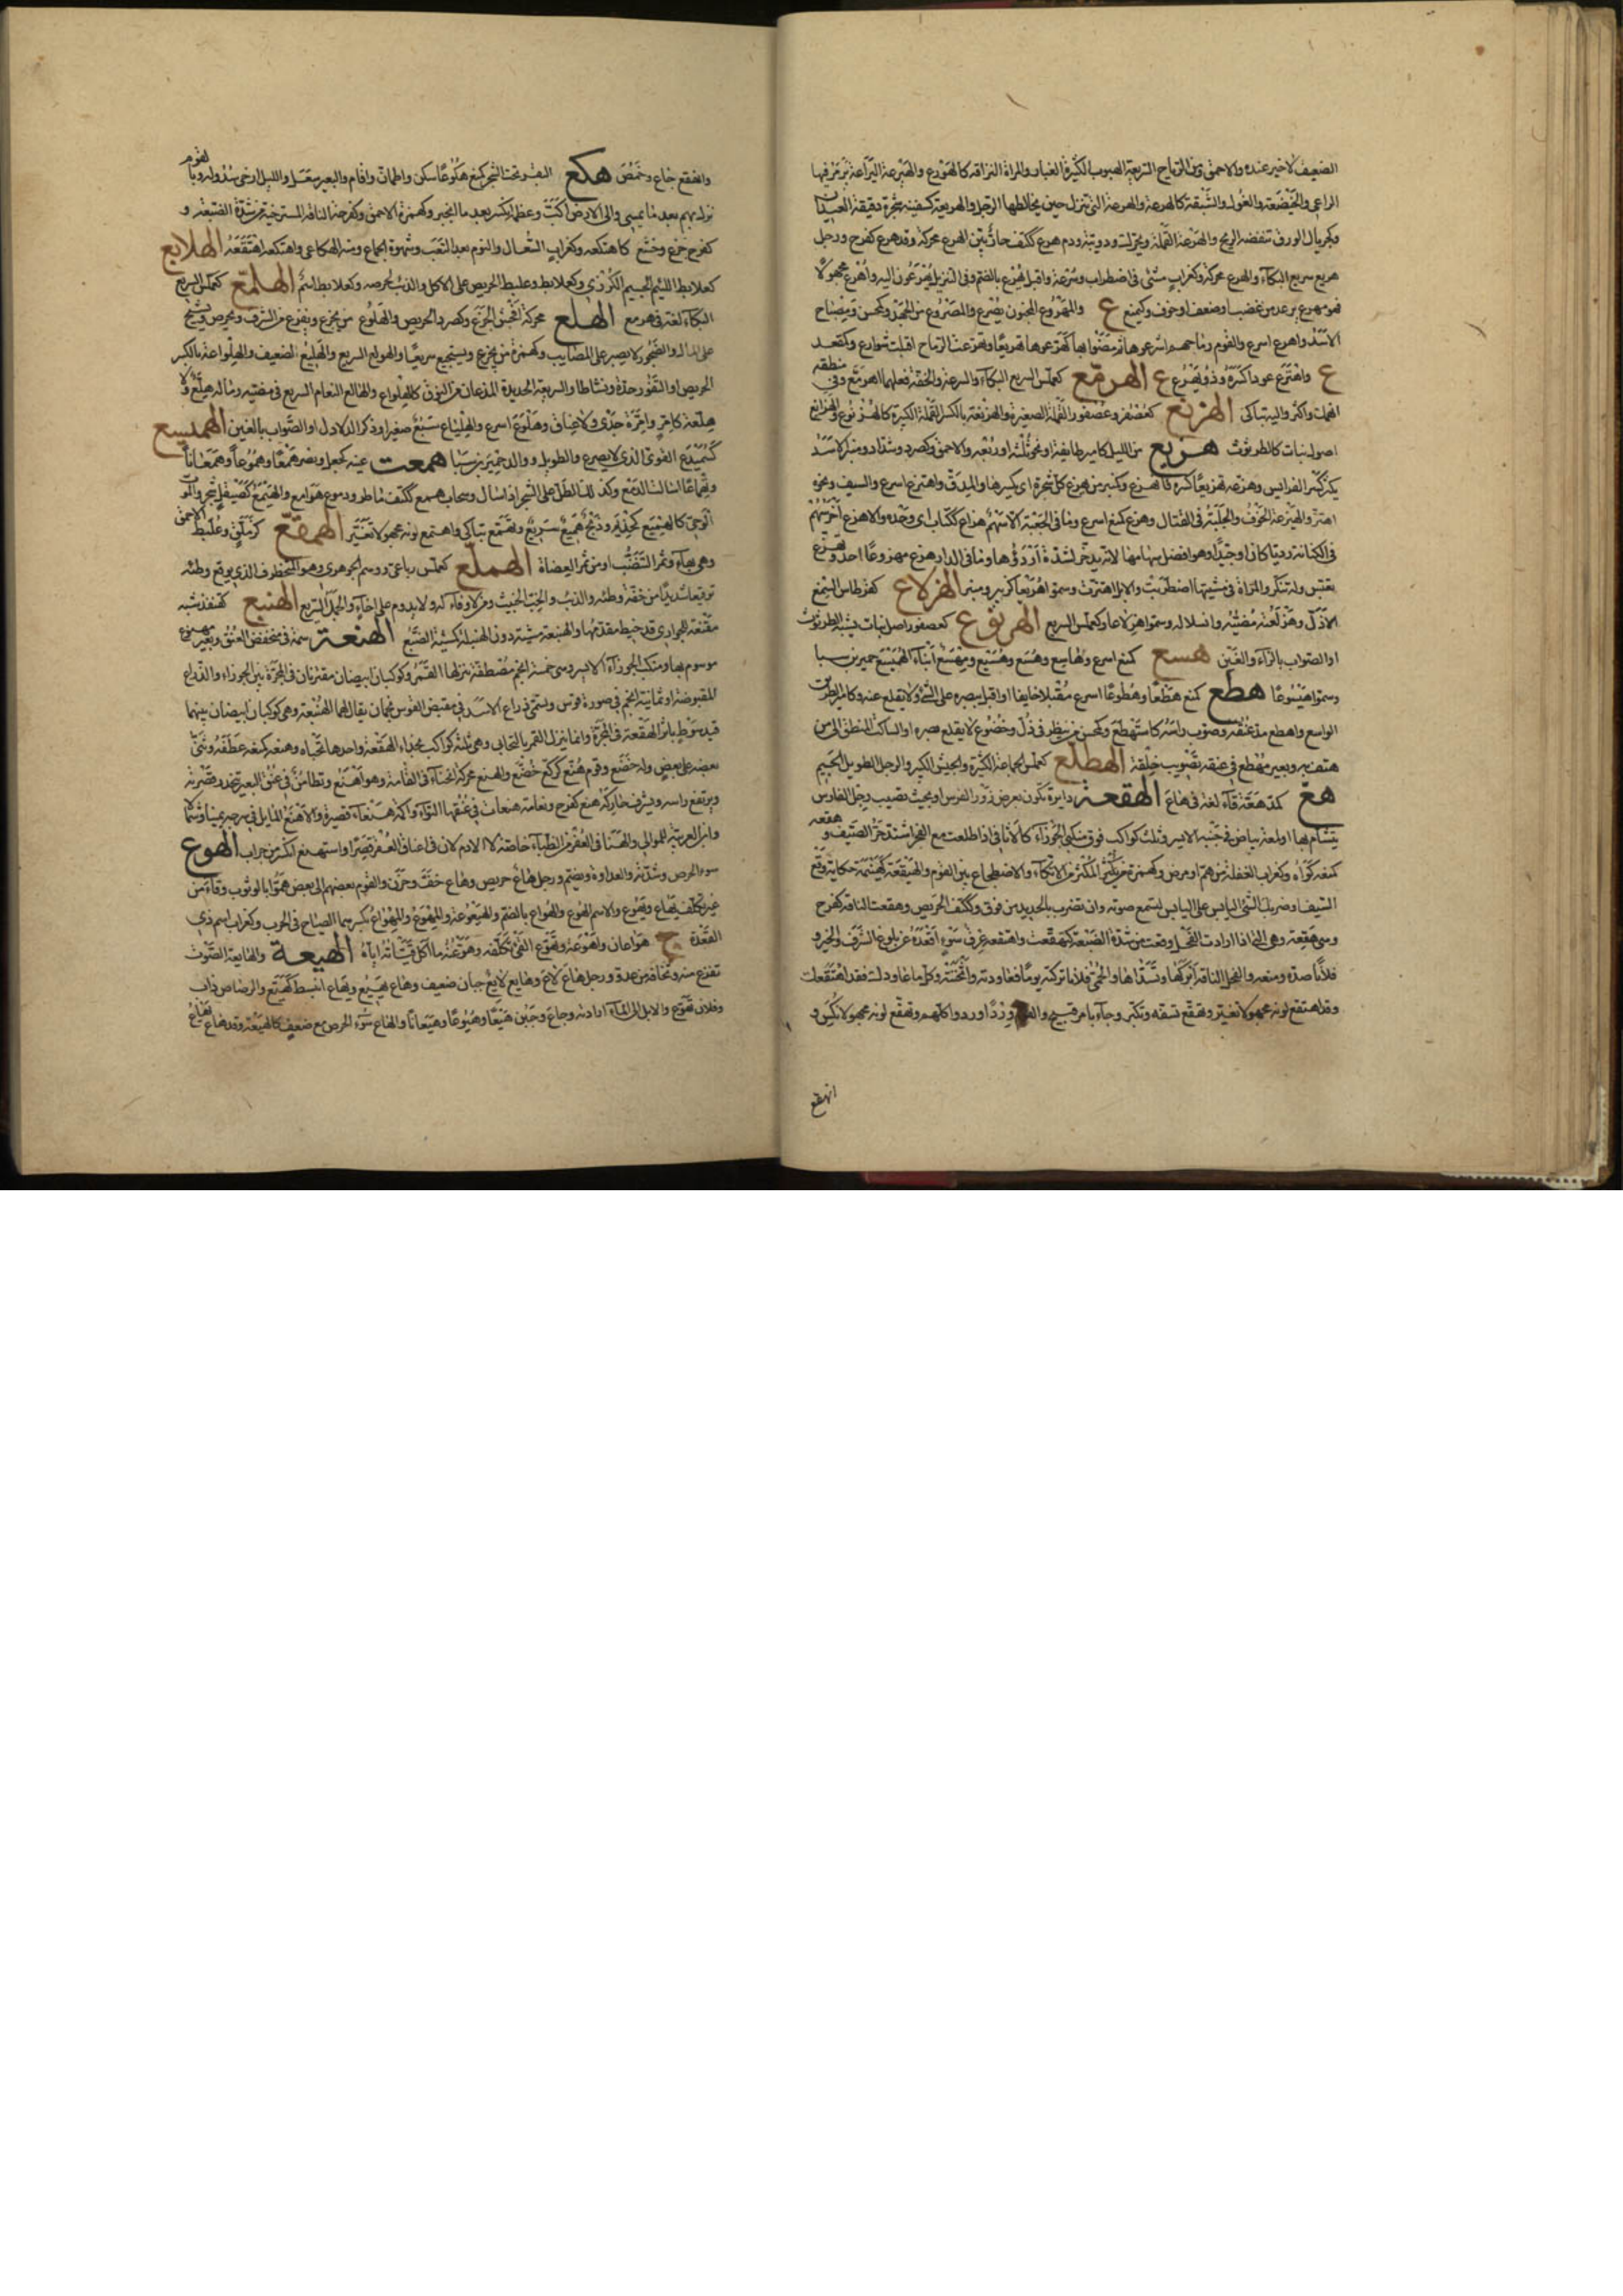 الضعيف لا خير عنده والاحمق ومن الرياح السريعة الهبوب الكثيرة الغبار والمراة النزاقة كالهورع والهيرعة اليراعة يزمر فيها
الراعى والخيضعة والغول والشبقة كالهرعة والهرعة التى تنزل حين يخالطها الرجل والهريعة كسفينة شجرة دقيقة العيدان
وكجريال الورق تنفضه الريح والهرعة القملة ويحرك ودويبة ودم هرع ككتف جار بين الهرع محركة وقد هرع كفرح ورجل
هرع سريع البكاء والهرع محركة وكغراب مشى فى اضطراب وسرعة واقبل يهرع بالضم وفى التنزيل يهرعون اليه واهرع مجهولا
فهو مهرع يرعد من غضب او ضعف او خوف وكمنع ع والمهروع المجنون يصرع والمصروع من الجهد وكمحسن ومصباح
الاسد واهرع اسرع والقوم رماحهم اشرعوها ثم مضوا بها كهرعوها تهريعا وتهرعت الرماح اقبلت شوارع وكمقعد
ع واهترع عودا كسره وذو يهرع ع الهرمع كعملس السريع البكاء والسرعة والخفة فعلهما اهرمع وفى منطقه
انهمك واكثر واليه تباكى الهرنع كقنفذ وعصفور القملة الصغيرة والهرنعة بالكسر القملة الكبيرة كالهرنوع والهرانع
اصول نبات كالطرثوث هزيع من الليل كامير طائفة او نحو ثلثه او ربعه والاحمق وكصرد وشداد ومنبر الاسد
يكثر كسر الفرايس وهزعه تهزيعا كسره فانهزع وكمنبر من يهزع كل شجرة اى يكسرها والمدق واهتزع اسرع والسيف ونحوه
اهتز والهيزعة الخوف والجلبة فى القتال وهزع كمنع اسرع وما فى الجعبة الا سهم هزاع ككتاب اى وحده والاهزع آخر سهم
فى الكنانة رديا كان او جيدا او هو افضل سهامها لانه يدخر لشدة او اردؤها وما فى الدار اهزع مهزوعا احد وتهزع
تعبس وله تنكر والمراة فى مشيتها اضطربت والابل اهتزت وسموا هزيعا كزبير ومنبر الهزلاع كقرطاس السمع
الازل وهزلعته مضيه وانسلاله وسموا هزلاعا وكعملس السريع الهزنوع كعصفور اصل نبات يشبه الطرثوث
او الصواب بالراء والغين هسع كمنع اسرع وهاسع وهسع وهسيع ومهسع ابناء الهميسع حمير بن سبا
وسموا هيسوعا هطع كمنع هطعا وهطوعا اسرع مقبلا خائفا او اقبل ببصره على الشئ لا يقلع عنه وكامير الطريق
الواسع واهطع مد عنقه وصوب راسه كاستهطع وكمحسن من ينظر فى ذل وخضوع لا يقلع بصره او الساكت المنطلق الى من
هتف به وبعير مهطع فى عنقه تصويب خلقة الهطلع كعملس الجماعة الكثيرة والجيش الكبير والرجل الطويل الجسيم
هع كمد هعة قاء لغة فى هاع الهقعة دايرة تكون بعرض زور الفرس او بحيث تصيب رجل الفارس
يتشام بها او لمعة بياض فى جنبه الايسر وثلث كواكب فوق منكبى الجوزاء كالاثافى اذا طلعت مع الفجر اشتد حر الصيف وهقعه
كمنعه كواه وكغراب الغفلة من هم او مرض وكهمزة من يكثر الاتكاء والاضطجاع بين القوم والهيقعة كهينمة حكاية وقع
السيف او ضربك الشئ اليابس على اليابس لتسمع صوته وان تضرب بالحديد من فوق وككتف الحريص وهقعت الناقة كفرح
وهى هقعة وهى التى اذا ارادت الفحل وقعت من شدة الضبعة كتهقعت واهتقعه عرق سوء اقعده عن بلوغ الشرف والخير و
فلانا صده ومنعه والفحل الناقة ابركها وتسداها والحمى فلانا تركته يوما فعاودته واثخنته وكل ما عاودك فقد اهتقعك
وقد اهتقع لونه مجهولا تغير وتهقع تسفه وتكبر وجاء بامر قبيح والقوم وردا وردوا كلهم وتهقع لونه مجهولا نكس و
انهقع
وانهقع جاع وخمص هكع البقر تحت الشجر كمنع هكوعا سكن واطمأن واقام والبعير سعل والليل ارخى سدوله وبالقوم
نزل بهم بعد ما يمسى والى الارض اكب وعظمه انكسر بعد ما انجبر وكهمزة الاحمق وكفرحة الناقة المسترخية من شدة الضبعة و
كفرح جزع وخشع كاهتكع وكغراب السعال والنوم بعد التعب وشهوة الجماع ومنه الهكاعى واهتكعه اهتقعه الهلابع
كعلابط اللئيم الجسيم الكرزى وكعلابط وعلبط الحريص على الاكل والذئب لحرصه وكعلابط اسم الهلمع كعملس السريع
البكاء لغة فى هرمع الهلع محركة افحش الجزع وكصرد الحريص والهلوع من يجزع ويفزع من الشر ويحرص ويشح
على المال والضجور لا يصبر على المصايب وكهمزة من يجزع ويستجيع سريعا والهولع السريع والهليع الضعيف والهلواعة بالكسر
الحريص او النفور حدة ونشاطا والسريعة الحديدة المذعان من النوق كالهلواع والهالع النعام السريع فى مضيه وماله هلع ولا
هلعة كامر وامرة جدى ولا عناق وهلوع اسرع والهلياع سبع صغير او ذكر الدلادل او الصواب بالغين الهميسع
كسميدع القوى الذى لا يصرع والطويل ووالد حمير بن سبا همعت عينه كجعل ونصر همعا وهموعا وهمعانا
وتهماعا اسالت الدمع وكذلك الطل على الشجر اذا سال وسحاب همع ككتف ماطر ودموع هوامع والهيمع كصيقل شجر والموت
الوحى كالهميع كحذيم وذبح هميع سريع وتهمع تباكى واهتمع لونه مجهولا تغير الهمقع كزملق وعلبط الاحمق
وهى بهاء وثمر التنضب او من ثمر العضاه الهملع كعملس رباعى ووهم الجوهرى وهو المتخطرف الذى يوقع وطئه
توقيعا شديدا من خفة وطئه والذئب والخب الخبيث ومن لا وفاء له ولا يدوم على اخاء والجمل السريع الهنبع كقنفذ شبه
مقنعة للجوارى قد خيط مقدمها والهنبعة مشية دون الهنبلة كمشية الضبع الهنعة سمة فى منخفض العنق وبعير مهنوع
موسوم بها ومنكب الجوزاء الايسر وهى خمسة انجم مصطفة ينزلها القمر وكوكبان ابيضان مقترنان فى المجرة بين الجوزاء والذراع
المقبوضة او ثمانية انجم فى صورة قوس وتسمى ذراع الاسد فى مقبض القوس نجمان يقال لهما الهنعة وهى كوكبان ابيضان بينهما
قيد سوط باثر الهقعة فى المجرة وانما ينزل القمر بالتحايى وهى ثلثة كواكب بحذاء الهقعة واحدها تحياه وهنعه كمنعه عطفه وثنى
بعضه على بعض وله خضع وقوم هنع كركع خضع والهنع محركة انحناء فى القامة وهو اهنع وتطامن فى عنق البعير تنحدر قصرته
ويرتفع راسه ويشرف حاركه هنع كفرح ونعامة هنعاء فى عنقها التواء واكمة هنعاء قصيرة والاهنع المايل فى سرجه يمينا وشمالا
وابن العربية للموالى والهنع فى العفر من الظباء خاصة لا الادم لان فى اعناق العفر قصرا واستهنع انكسر من جراب الهوع
سوء الحرص وشدته والعداوة ويضم ورجل هاع حريص وهاع خف وحزن والقوم بعضهم الى بعض هموا بالوثوب وقاء من
غير تكلف يهاع ويهوع والاسم الهوع والهواع بالضم والهيعوعة والمهوع والمهواع بكسرهما الصياح فى الحرب وكغراب اسم ذى
القعدة ج هواعات واهوعة وتهوع القئ تكلفه وهوعته ما اكل قيأته اياه الهيعة والهايعة الصوت
تفزع منه وتخافه من عدو ورجل هاع لاع وهايع لايع جبان ضعيف وهاع يهيع ويهاع انبسط كتهيع والرصاص ذاب
وفلان تهوع والابل الى الماء ارادته وجاع وجبن هيعا وهيوعا وهيعانا والهاع سوء الحرص مع ضعف كالهيعة وقد هاع يهاع